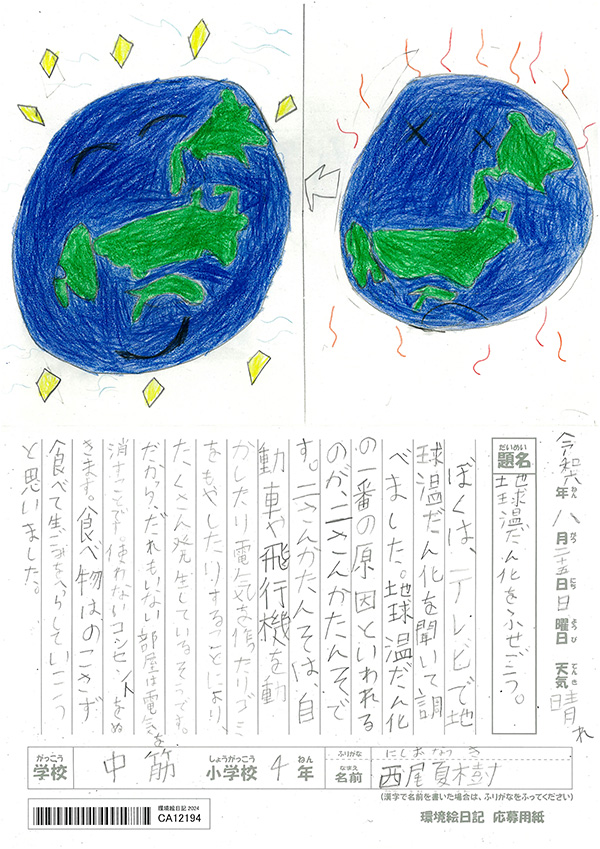 令和六年八月二十五日日曜日 天気 晴れ
だいめい
題名
地球温だん化をふせごう。
ぼくは、テレビで地
球温だん化を聞いて調
べました。地球温だん化
の一番の原因といわれる
のが、二さんかたんそで
す。二さんかたんそは、自
動車や飛行機を動
かしたり電気を作ったりゴミ
をもやしたりすることにより
たくさん発生しているそうです。
だから、だれもいない部屋は電気を
消すことです。使わないコンセントをぬ
きます。食べ物はのこさず
食べて生ごみをへらしていこう
と思いました。
がっこう
学校
中筋
しょうがっこう
小学校
4
ねん
年
ふりがな
にしおなつき
なまえ
名前
西尾夏樹
(漢字で名前を書いた場合は、ふりがなをふってください)
環境絵日記 2024
CA12194
環境絵日記 応募用紙